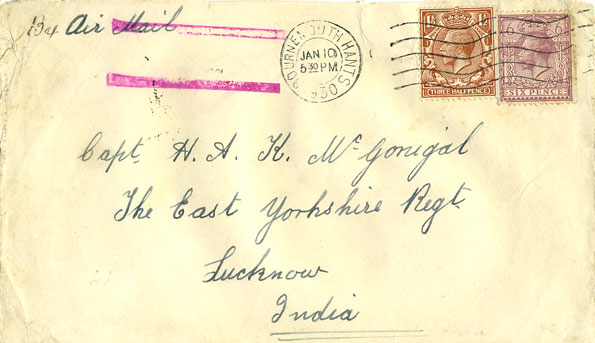 By Air Mail
BOURNEMOUTH HANTS
JAN 10
5 30 PM
1930
THREE HALFPENCE
SIX PENCE
Capt. H. A. K. McGonigal
The East Yorkshire Regt.
Lucknow
India